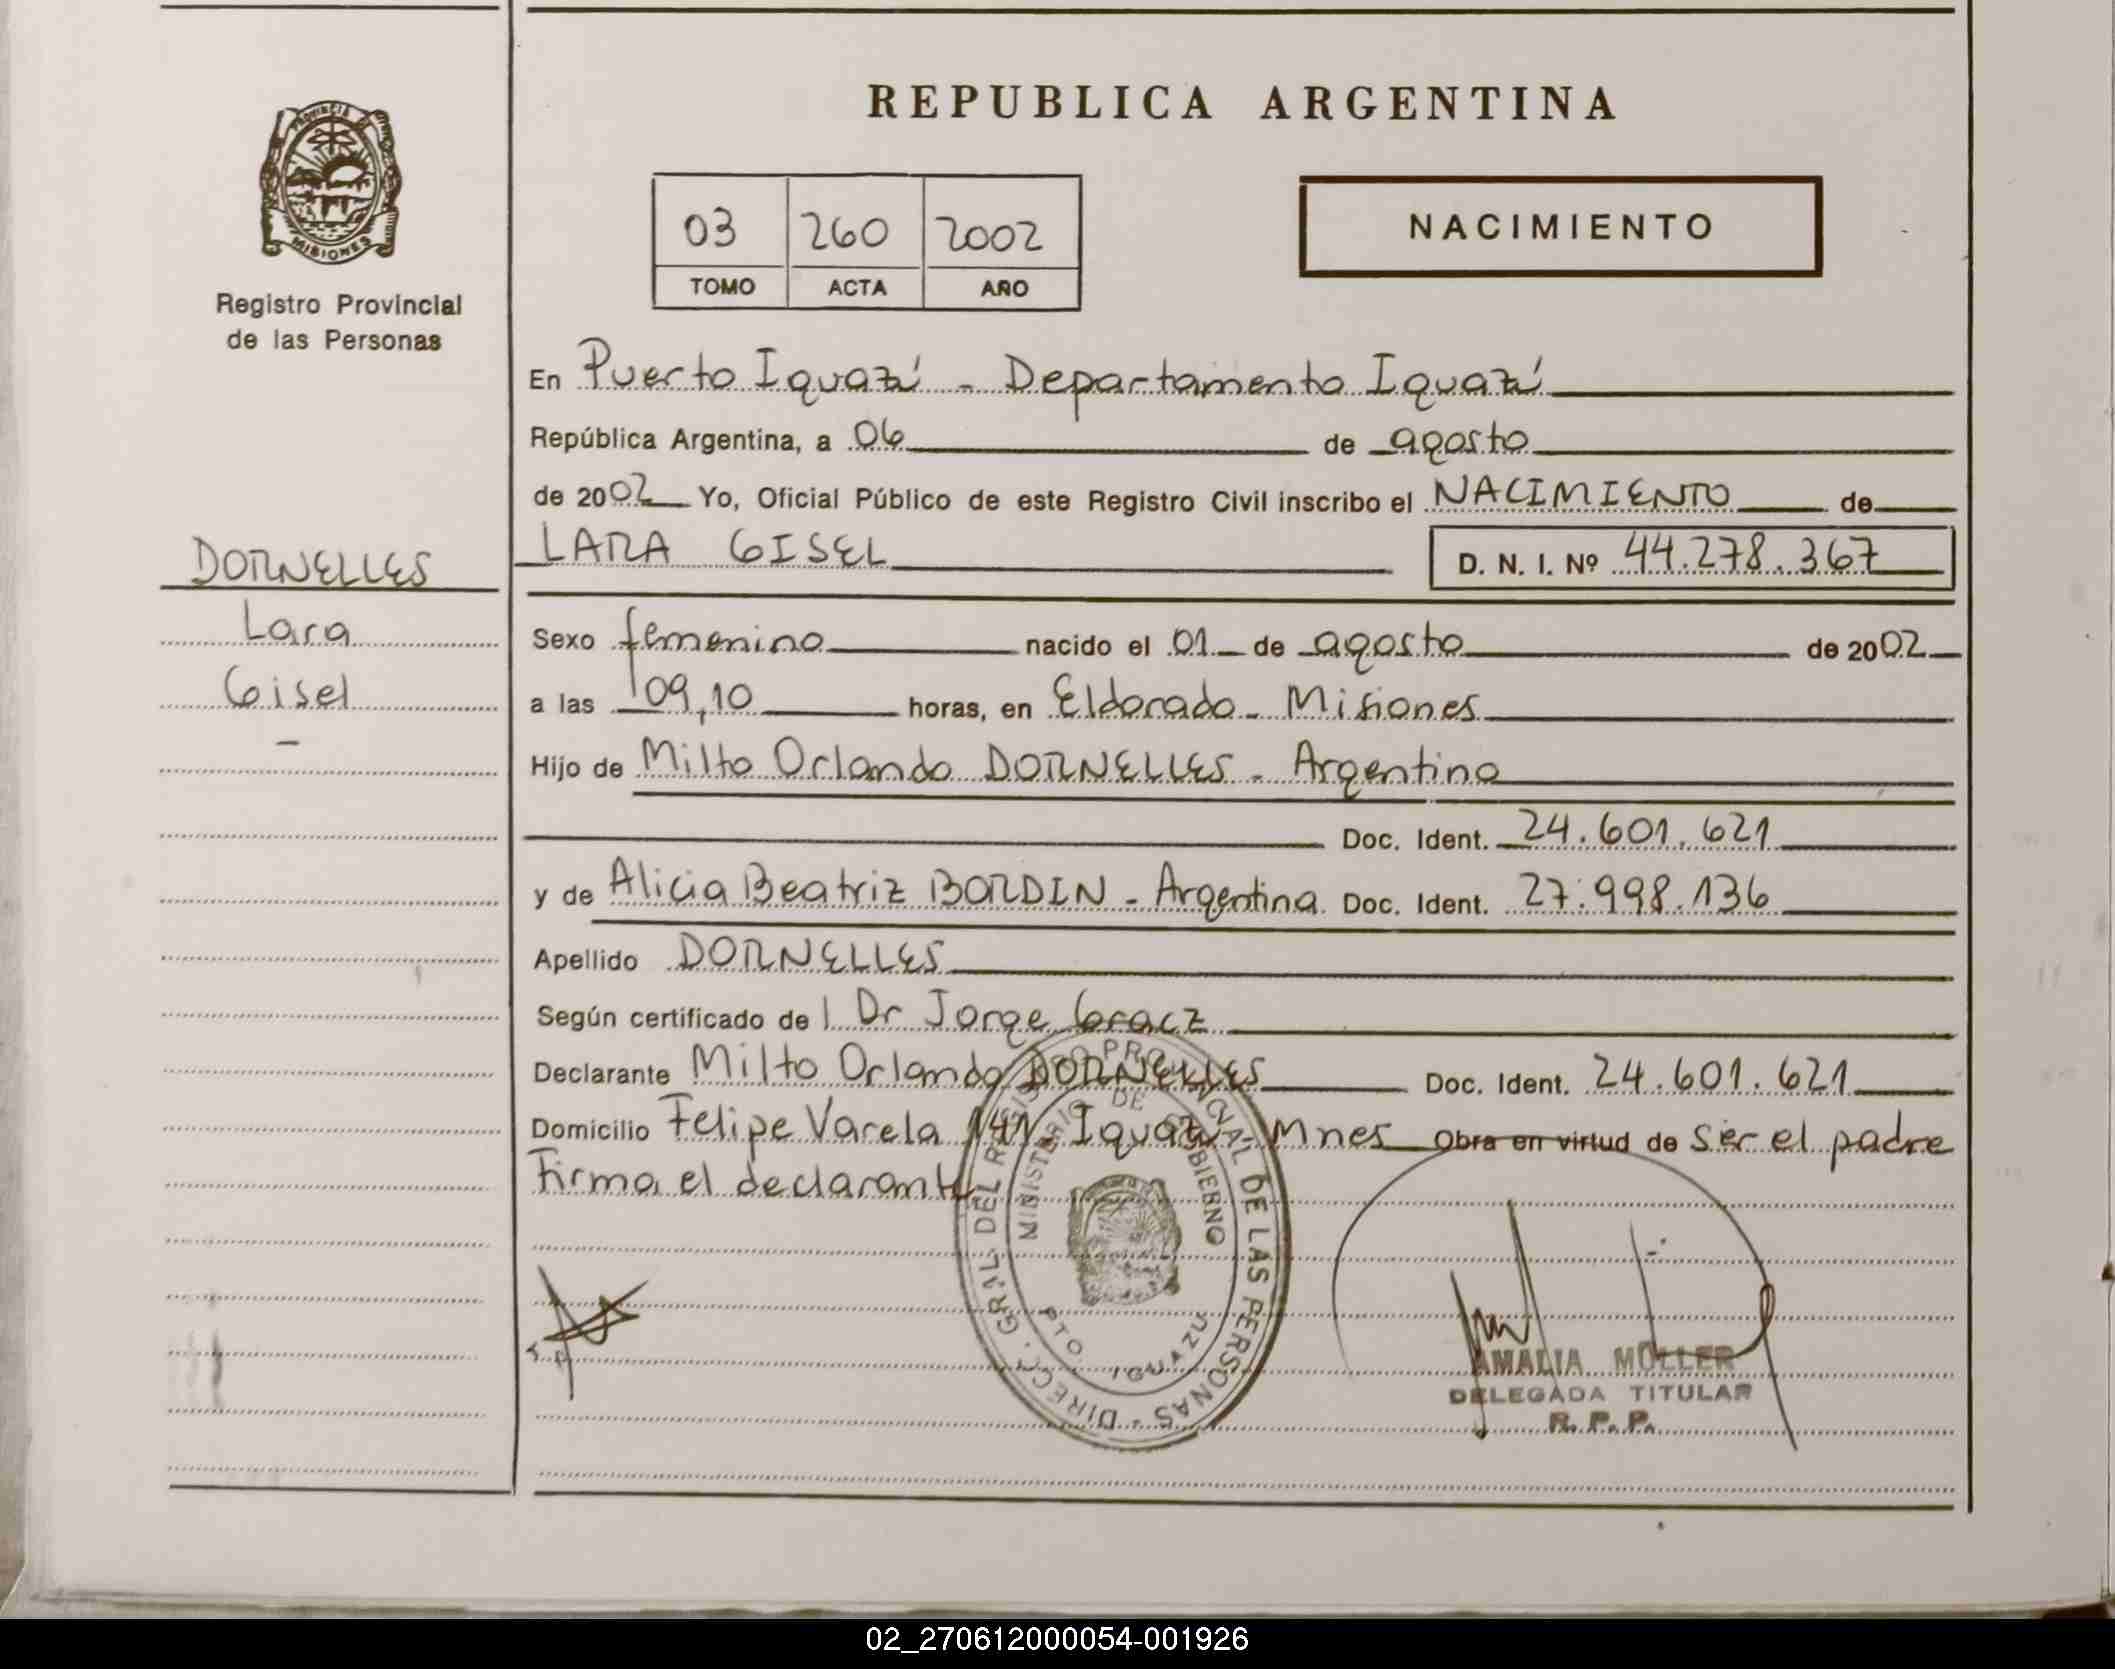 REPUBLICA ARGENTINA
PROVINCIA DE
MISIONES
Registro Provincial
de las Personas
03 260 2002
TOMO ACTA AÑO
NACIMIENTO
En Puerto Iguazú - Departamento Iguazú
República Argentina, a 06 de agosto
de 2002 Yo, Oficial Público de este Registro Civil inscribo el NACIMIENTO de
LARA GISEL D. N. I. Nº 44.278.367
DORNELLES
Lara
Gisel
-
Sexo femenino nacido el 01 de agosto de 2002
a las 09,10 horas, en Eldorado - Misiones
Hijo de Milto Orlando DORNELLES - Argentino
Doc. Ident. 24.601.621
y de Alicia Beatriz BORDIN - Argentina Doc. Ident. 27.998.136
Apellido DORNELLES
Según certificado de Dr Jorge
Declarante Milto Orlando DORNELLES Doc. Ident. 24.601.621
Domicilio Felipe Varela Iguazú - Mnes Obra en virtud de ser el padre
Firma el declarante
DIRECC. GRAL. DEL REGISTRO PROVINCIAL DE LAS PERSONAS -
MINISTERIO DE GOBIERNO
PTO. IGUAZU
AMALIA MÜLLER
DELEGADA TITULAR
R. P. P.
02_270612000054-001926